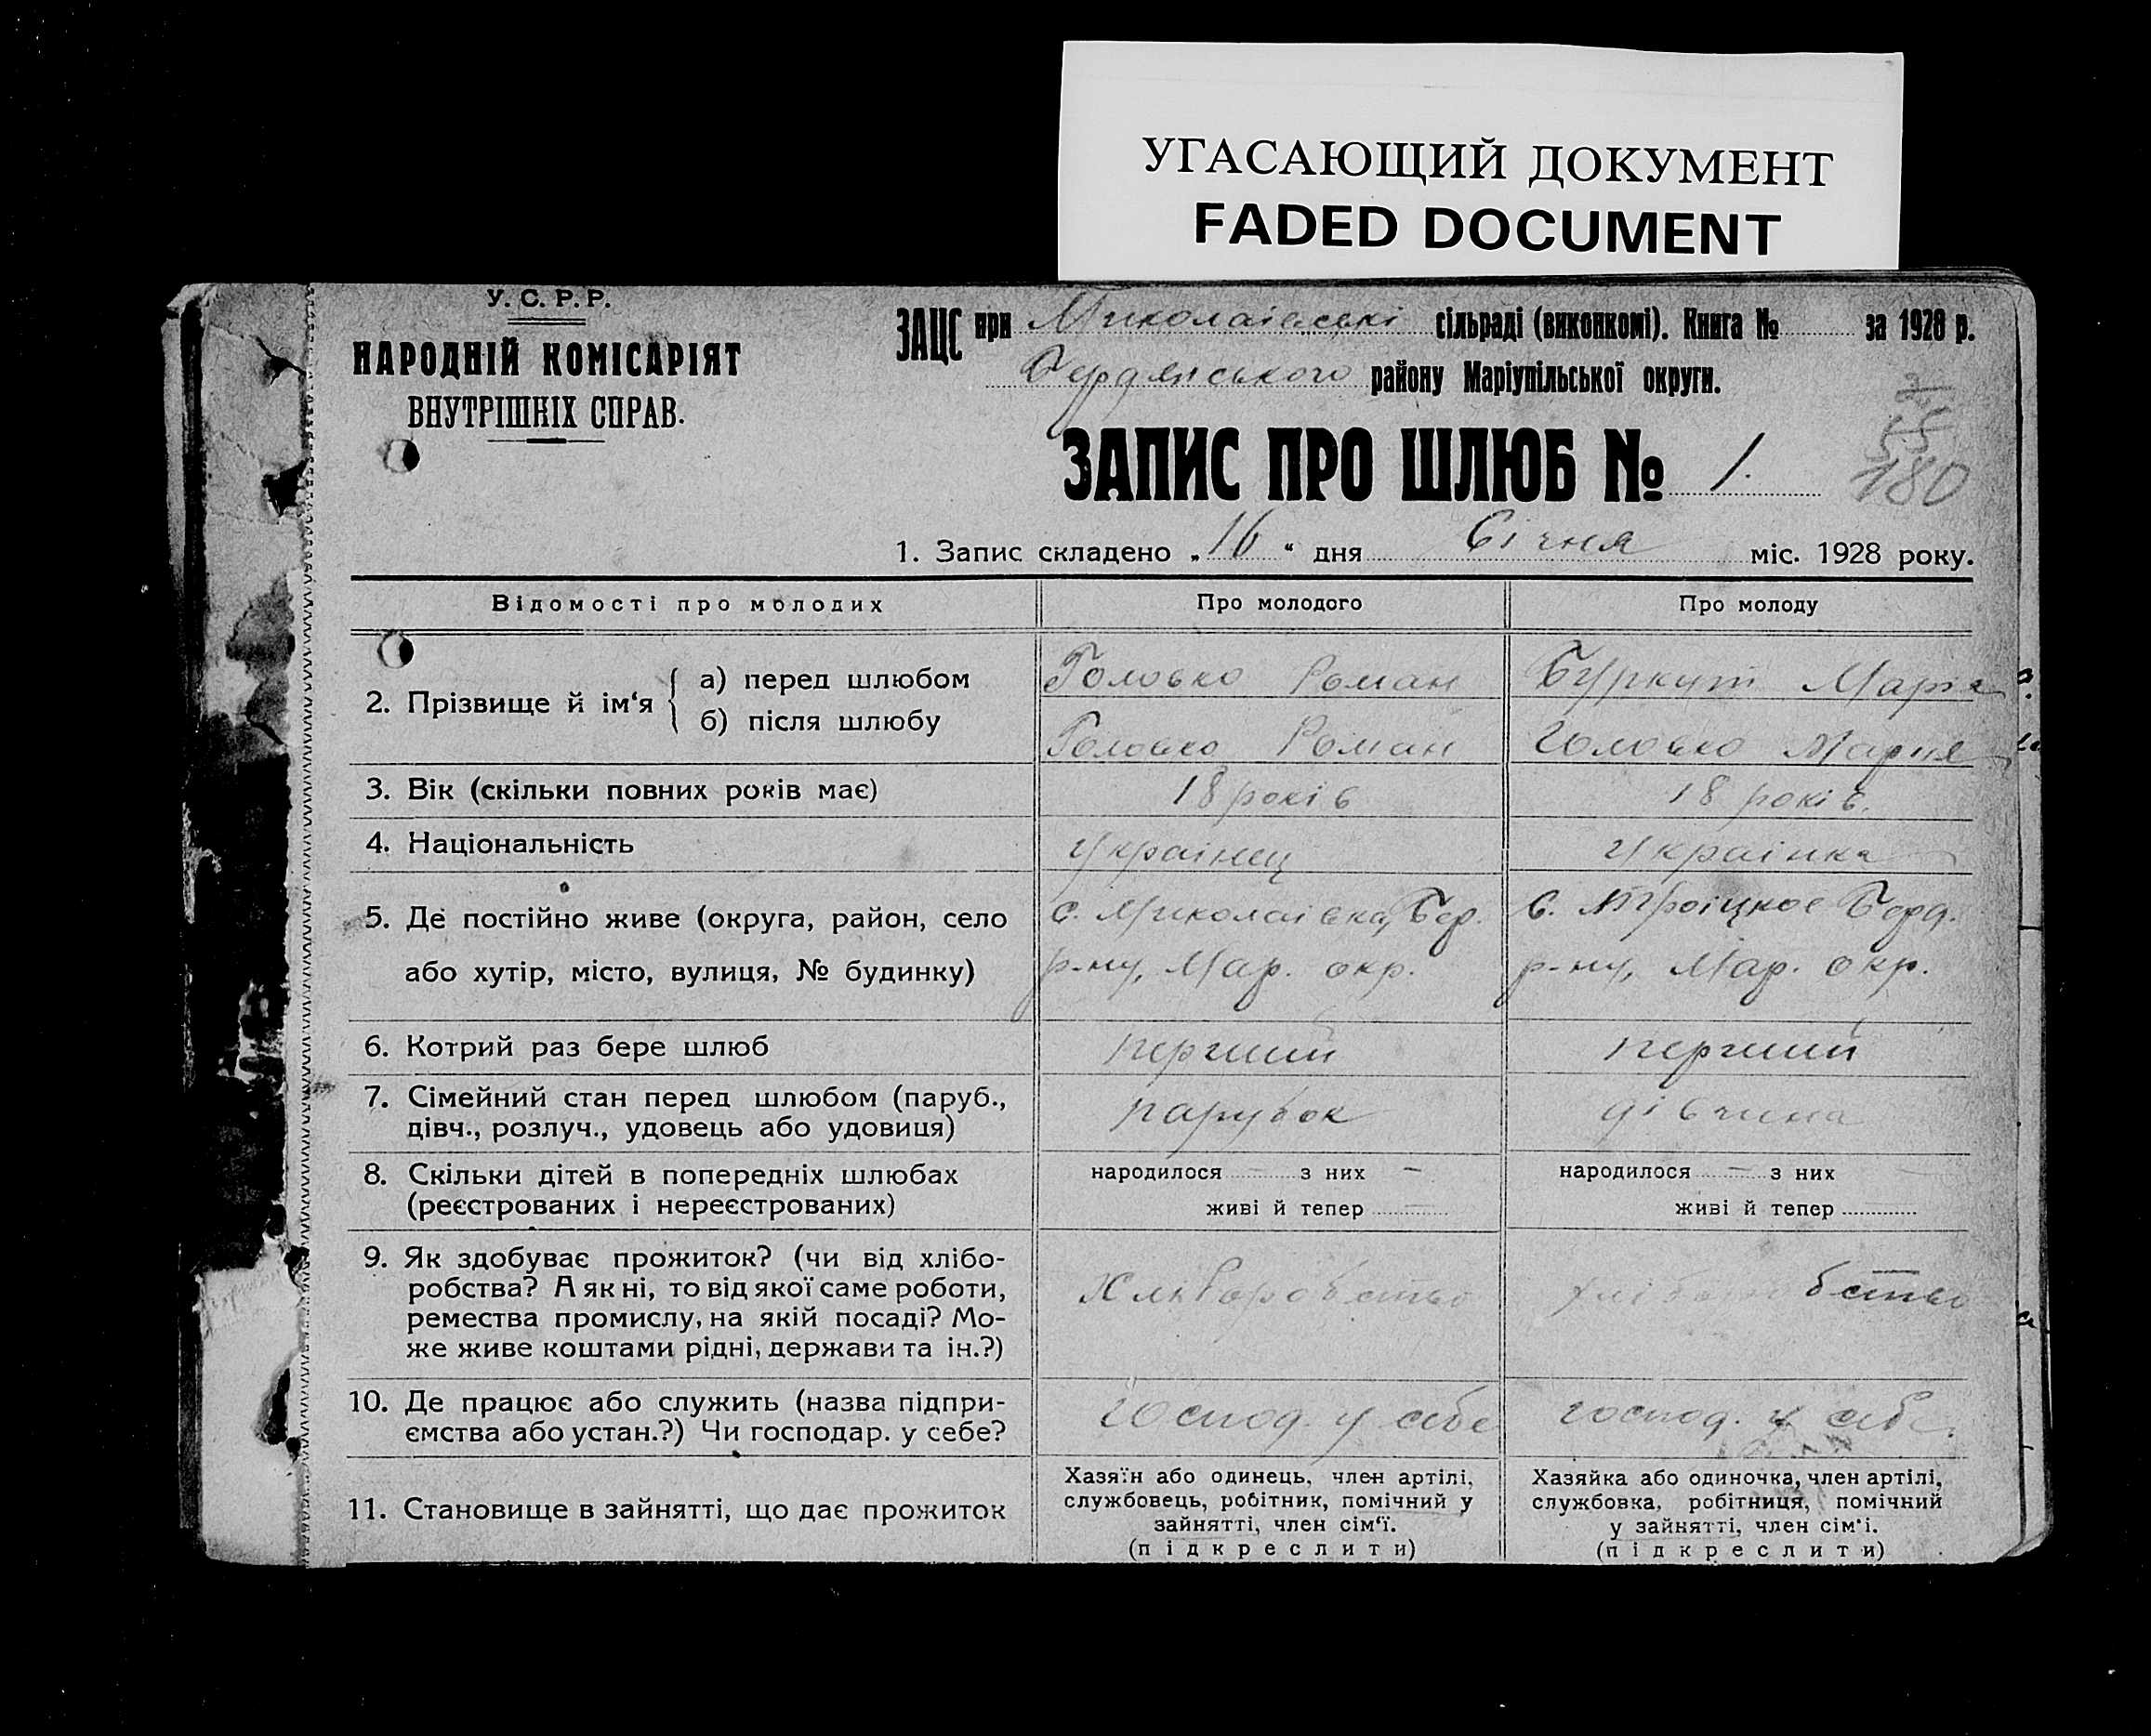 УГАСАЮЩИЙ ДОКУМЕНТ
FADED DOCUMENT
У. С. Р. Р.
НАРОДНІЙ КОМІСАРІЯТ
ВНУТРІШНІХ СПРАВ.
ЗАЦС при Миколаівські сільраді (виконкомі). Книга № за 1928 р.
Бердянського району Маріупільської округи.
ЗАПИС ПРО ШЛЮБ № 1.
180
1. Запис складено „16“ дня Січня міс. 1928 року.
Відомості про молодих Про молодого Про молоду
2. Прізвище й ім‘я { а) перед шлюбом Головко Роман Буркут Марія
б) після шлюбу Головко Роман Головко Мария
3. Вік (скільки повних років має) 18 років 18 років.
4. Національність Українец Українка
5. Де постійно живе (округа, район, село с. Миколаівка, Бер. с. Троіцкое Берд.
або хутір, місто, вулиця, № будинку) р-ну, Мар. окр. р-ну, Мар. окр.
6. Котрий раз бере шлюб перший перший
7. Сімейний стан перед шлюбом (паруб., парубок дівчина
дівч., розлуч., удовець або удовиця)
8. Скільки дітей в попередніх шлюбах народилося — з них — народилося — з них
(реєстрованих і нереєстрованих) живі й тепер живі й тепер
9. Як здобуває прожиток? (чи від хлібо-
робства? А як ні, то від якої саме роботи,
ремества промислу, на якій посаді? Мо-
же живе коштами рідні, держави та ін.?)
10. Де працює або служить (назва підпри- господ. у себе господ. у себе.
ємства або устан.?) Чи господар. у себе?
11. Становище в зайнятті, що дає прожиток
Хазяїн або одинець, член артілі, Хазяйка або одиночка, член артілі,
службовець, робітник, помічний у службовка, робітниця, помічний
зайнятті, член сім‘ї. у зайнятті, член сім‘і.
(підкреслити) (підкреслити)